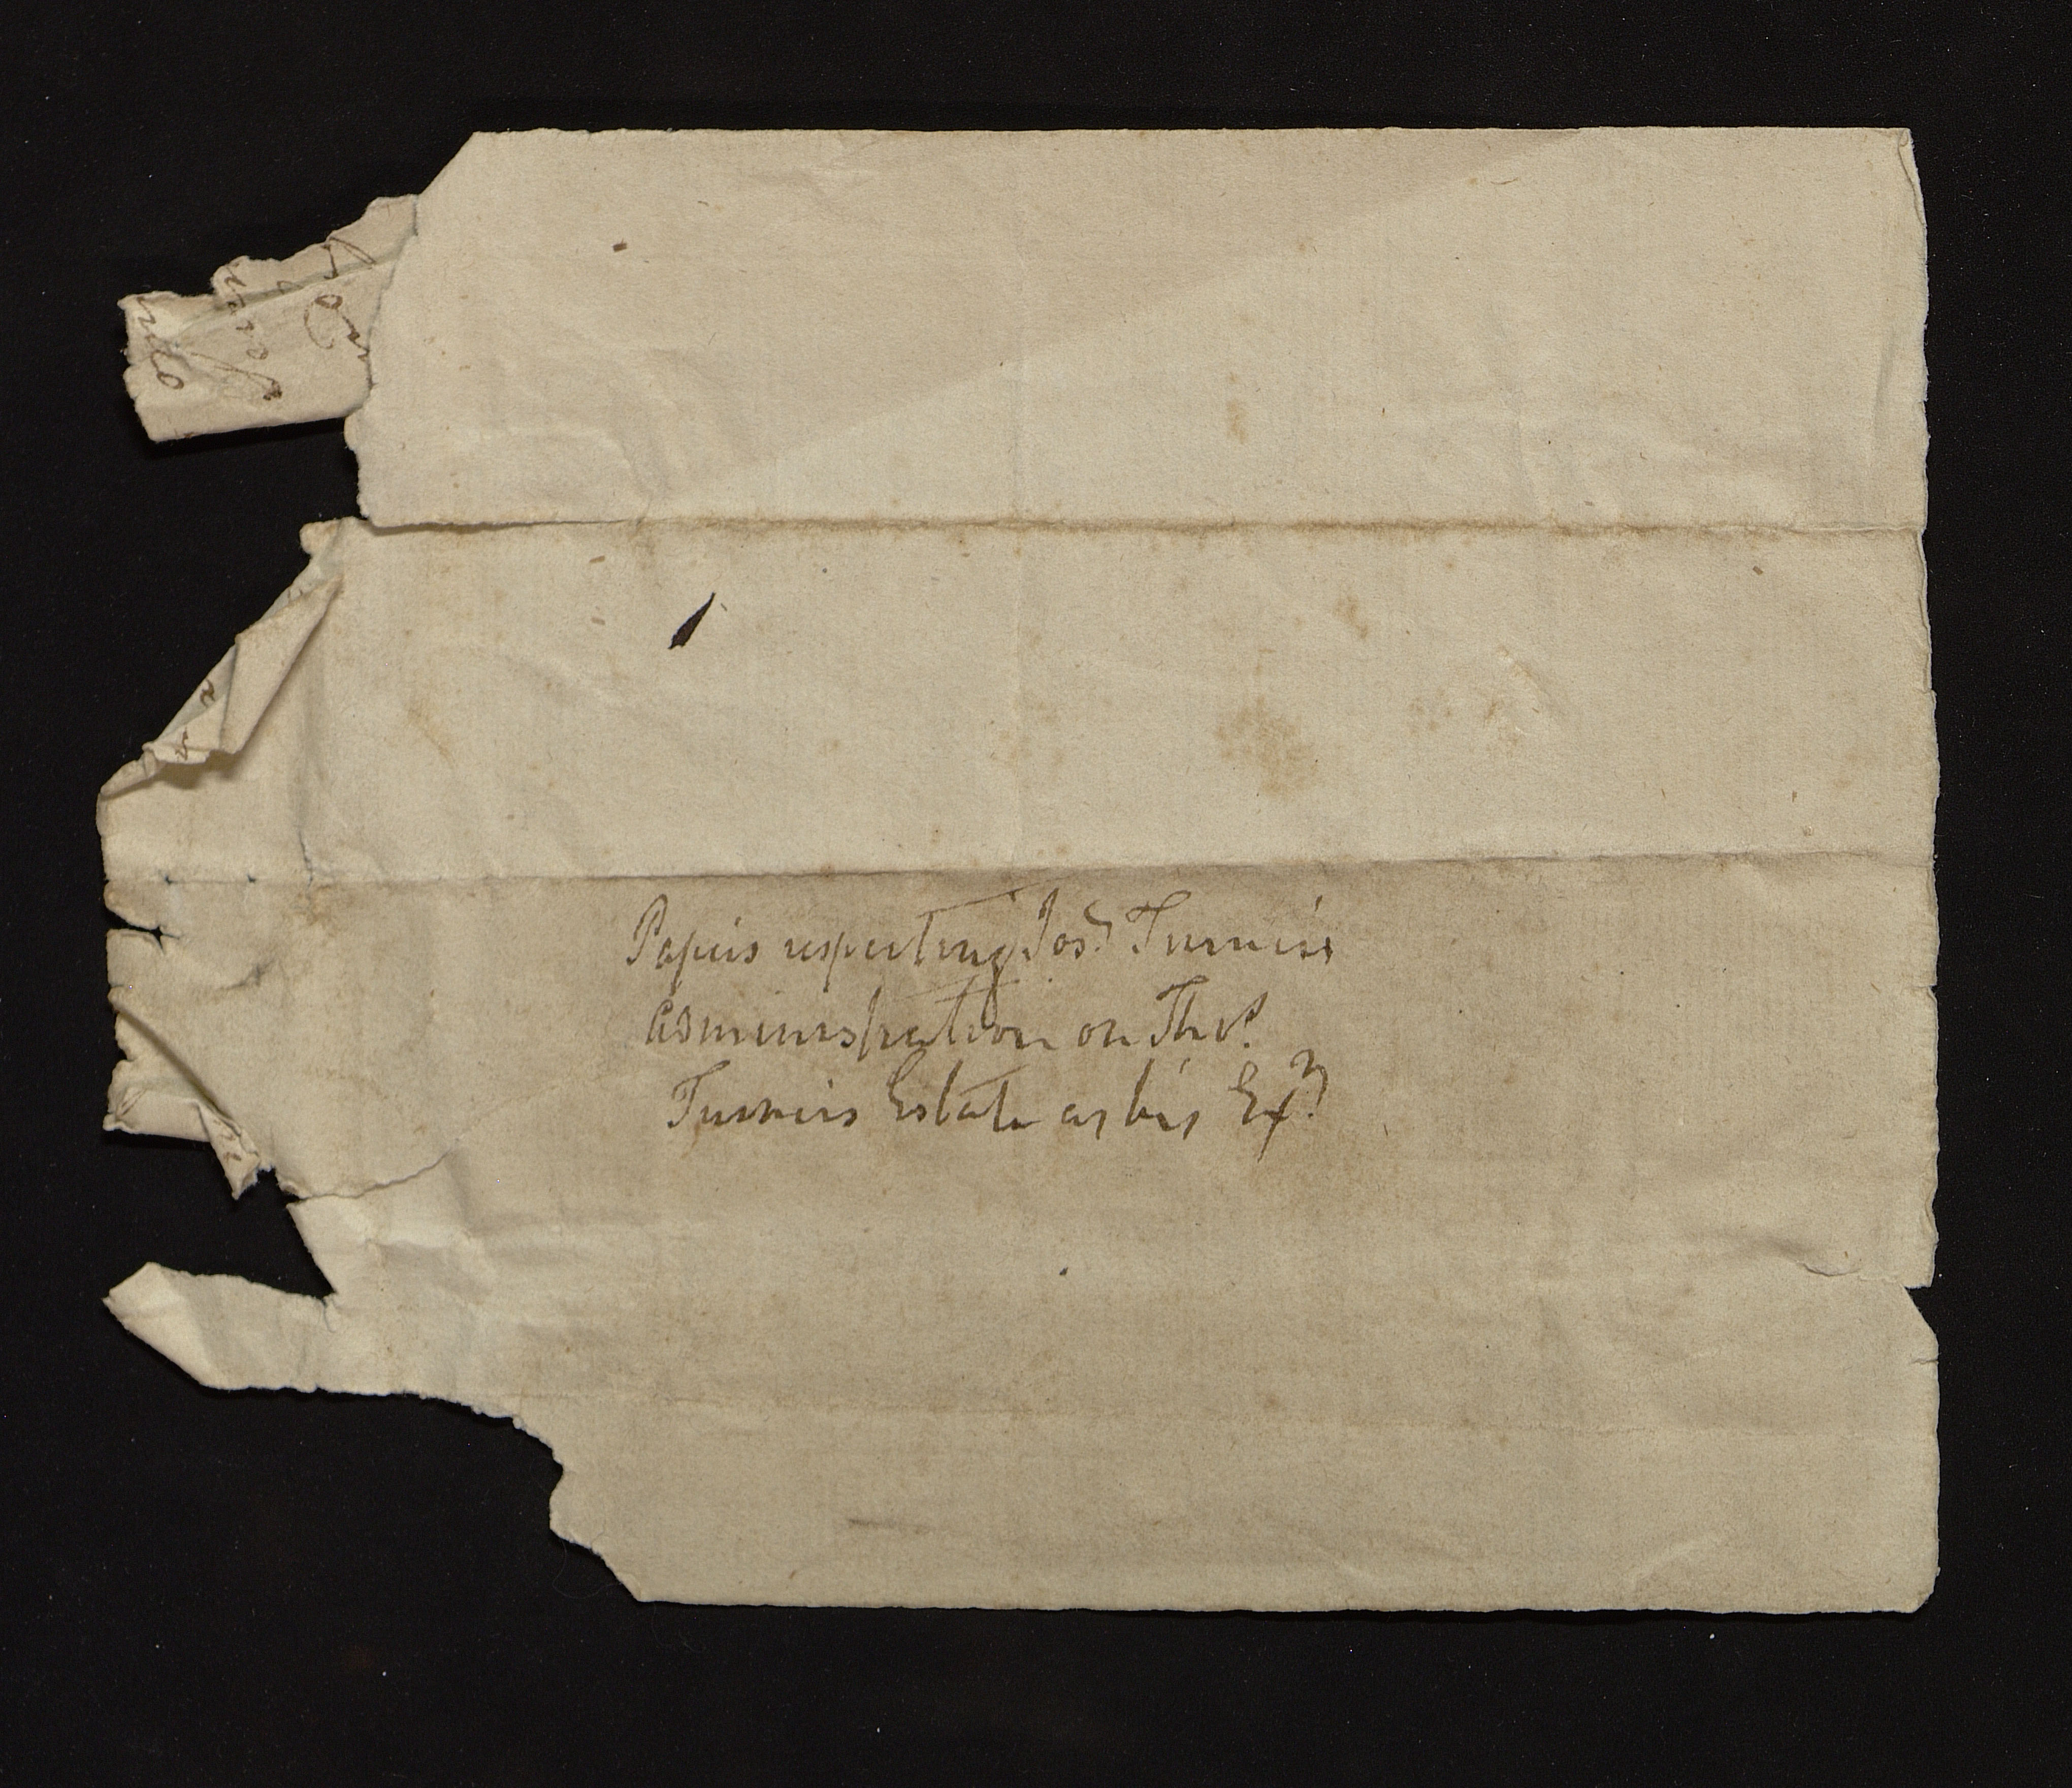 Papers respecting Jos? Turners
Administration on Tho?
Turners Estate as his Ex?